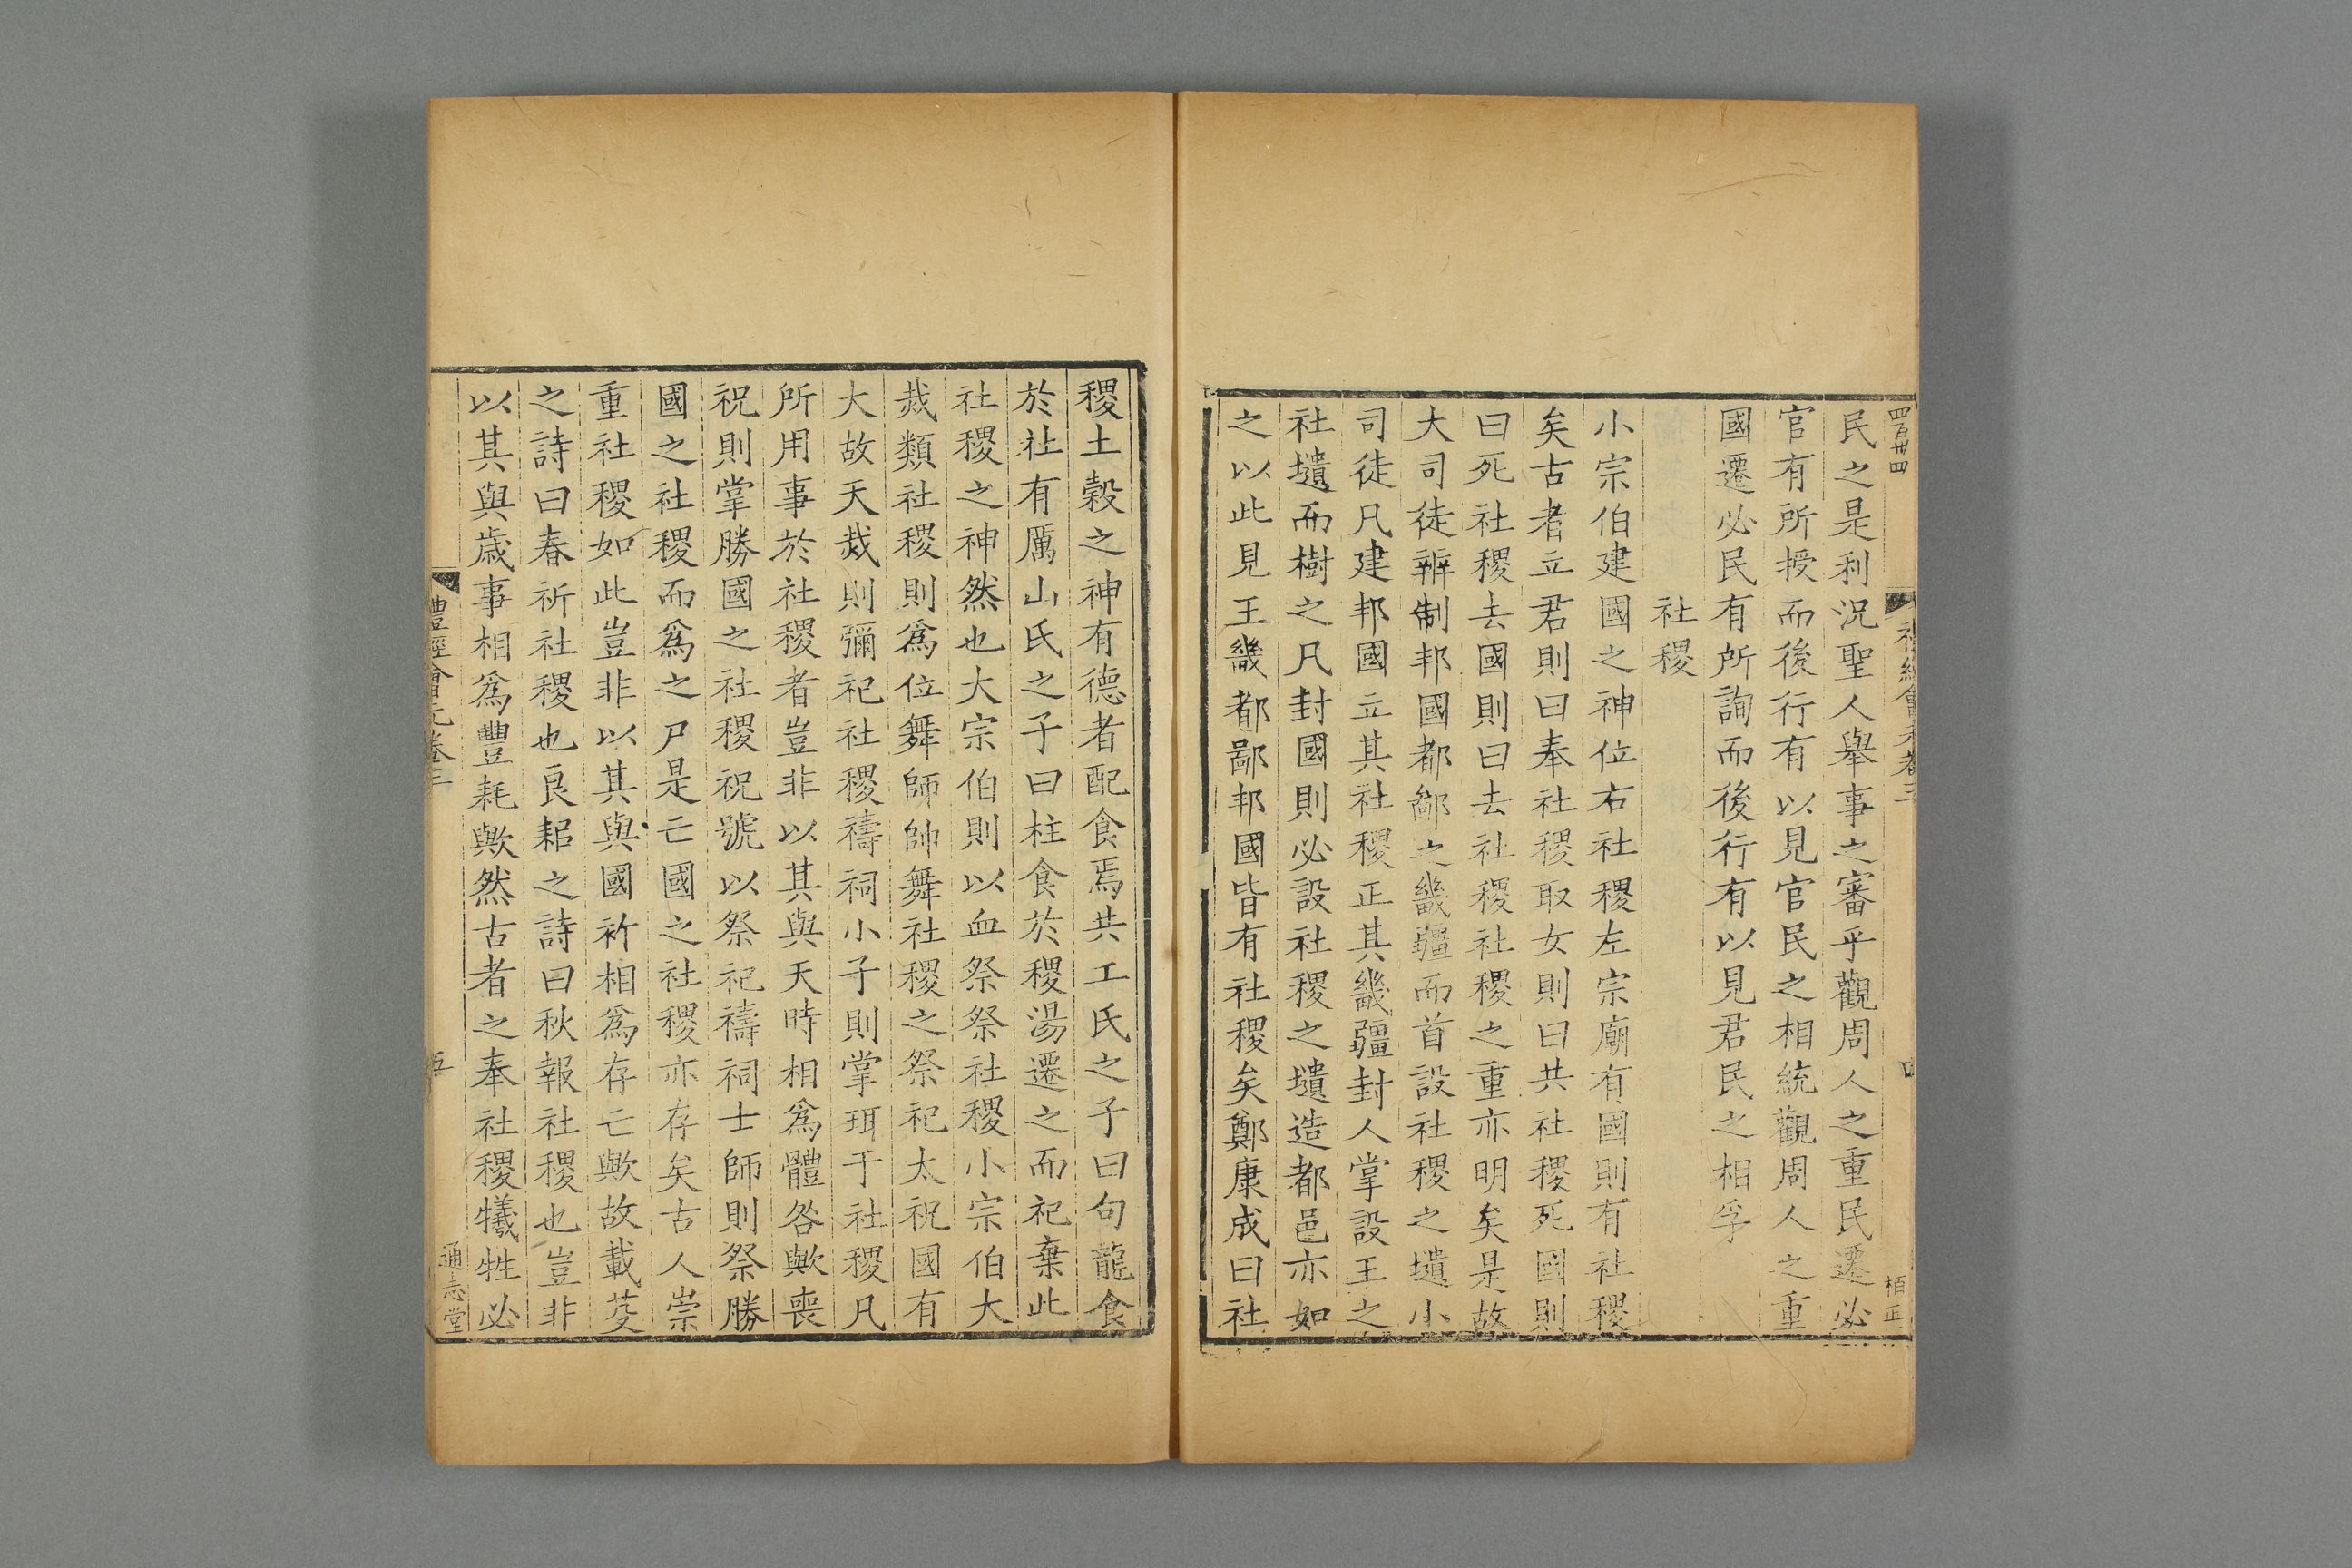 四百卅四
禮經會元卷三
四
栢正
民之是利況聖人舉事之審乎觀周人之重民遷必
官有所授而後行有以見官民之相統觀周人之重
國遷必民有所詢而後行有以見君民之相孚
社稷
小宗伯建國之神位右社稷左宗廟有國則有社稷
矣古者立君則曰奉社稷取女則曰共社稷死國則
曰死社稷去國則曰去社稷社稷之重亦明矣是故
大司徒辨制邦國都鄙之畿疆而首設社稷之壝小
司徒凡建邦國立其社稷正其畿疆封人掌設王之
社壝而樹之凡封國則必設社稷之壝造都邑亦如
之以此見王畿都鄙邦國皆有社稷矣鄭康成曰社
稷土穀之神有德者配食焉共工氏之子曰句龍食
於社有厲山氏之子曰柱食於稷湯遷之而祀棄此
社稷之神然也大宗伯則以血祭祭社稷小宗伯大
烖類社稷則爲位舞師帥舞社稷之祭祀太祝國有
大故天烖則彌祀社稷禱祠小子則掌珥于社稷凡
所用事於社稷者豈非以其與天時相爲體咎歟喪
祝則掌勝國之社稷祝號以祭祀禱祠士師則祭勝
國之社稷而爲之尸是亡國之社稷亦存矣古人崇
重社稷如此豈非以其與國祚相爲存亡歟故載芟
之詩曰春祈社稷也良耜之詩曰秋報社稷也豈非
以其與歲事相爲豐耗歟然古者之奉社稷犧牲必
禮經會元卷三
五
通志堂